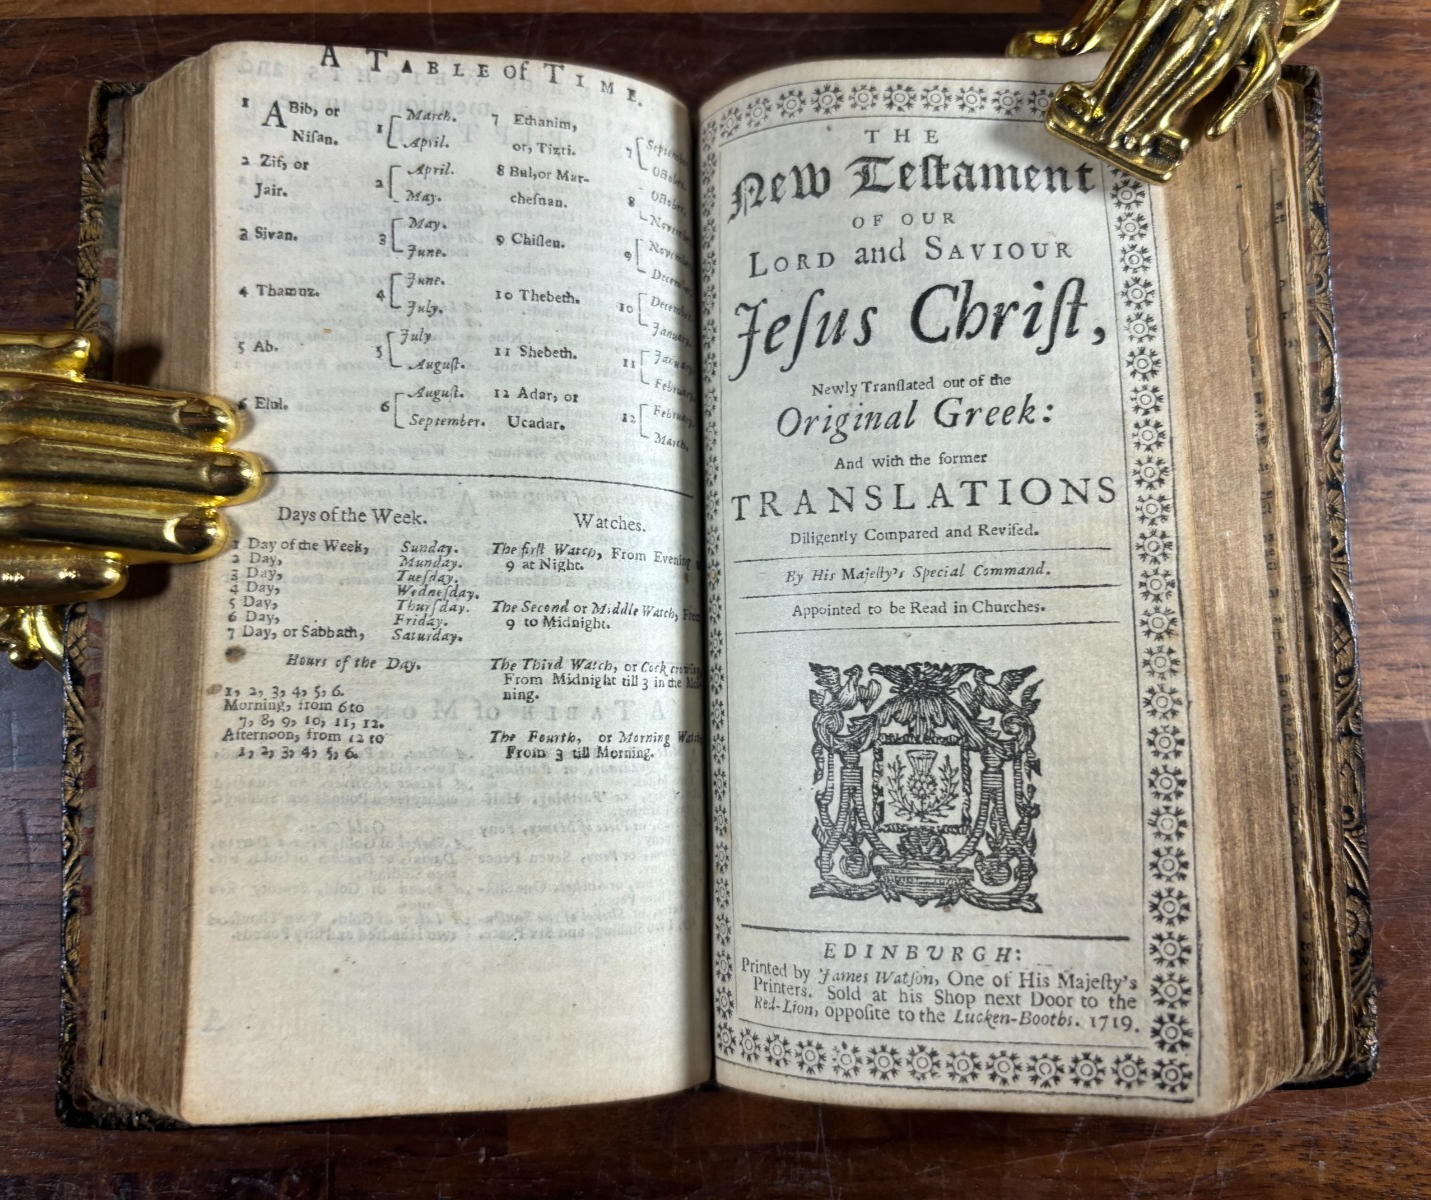 A TABLE of TIME.
1 ABib, or Niſan. 1 March. April.
2 Zif, or Jair. 2 April. May.
3 Sivan. 3 May. June.
4 Thamuz. 4 June. July.
5 Ab. 5 July August.
6 Elul. 6 Auguſt. September.
7 Ethanim, or, Tizri. 7
8 Bul, or Mar-
cheſnan. 8
9 Chiſleu. 9
10 Thebeth. 10
11 Shebeth. 11
12 Adar, or
Ucadar. 12
Days of the Week.
1 Day of the Week, Sunday.
2 Day, Munday.
3 Day, Tueſday.
4 Day, Wedneſday.
5 Day, Thurſday.
6 Day, Friday.
7 Day, or Sabbath, Saturday.
Hours of the Day.
1, 2, 3, 4, 5, 6.
Morning, from 6 to
7, 8, 9, 10, 11, 12.
Afternoon, from 12 to
1, 2, 3, 4, 5, 6.
Watches.
The firſt Watch, From Evening
9 at Night.
The Second or Middle Watch,
9 to Midnight.
The Third Watch, or Cock
From Midnight till 3 in the
ning.
The Fourth, or Morning
From 3 till Morning.
THE
New Teſtament
OF OUR
LORD and SAVIOUR
Jeſus Chriſt,
Newly Tranſlated out of the
Original Greek:
And with the former
TRANSLATIONS
Diligently Compared and Reviſed.
By His Majeſty's Special Command.
Appointed to be Read in Churches.
EDINBURGH:
Printed by James Watſon, One of His Majeſty's
Printers. Sold at his Shop next Door to the
Red-Lion, oppoſite to the Lucken-Booths. 1719.